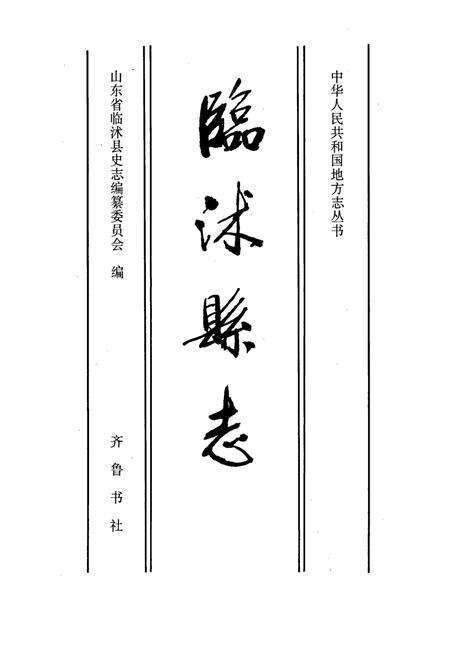 中华人民共和国地方志丛书
臨沭縣志
山东省临沭县史志编纂委员会 编
齐鲁书社